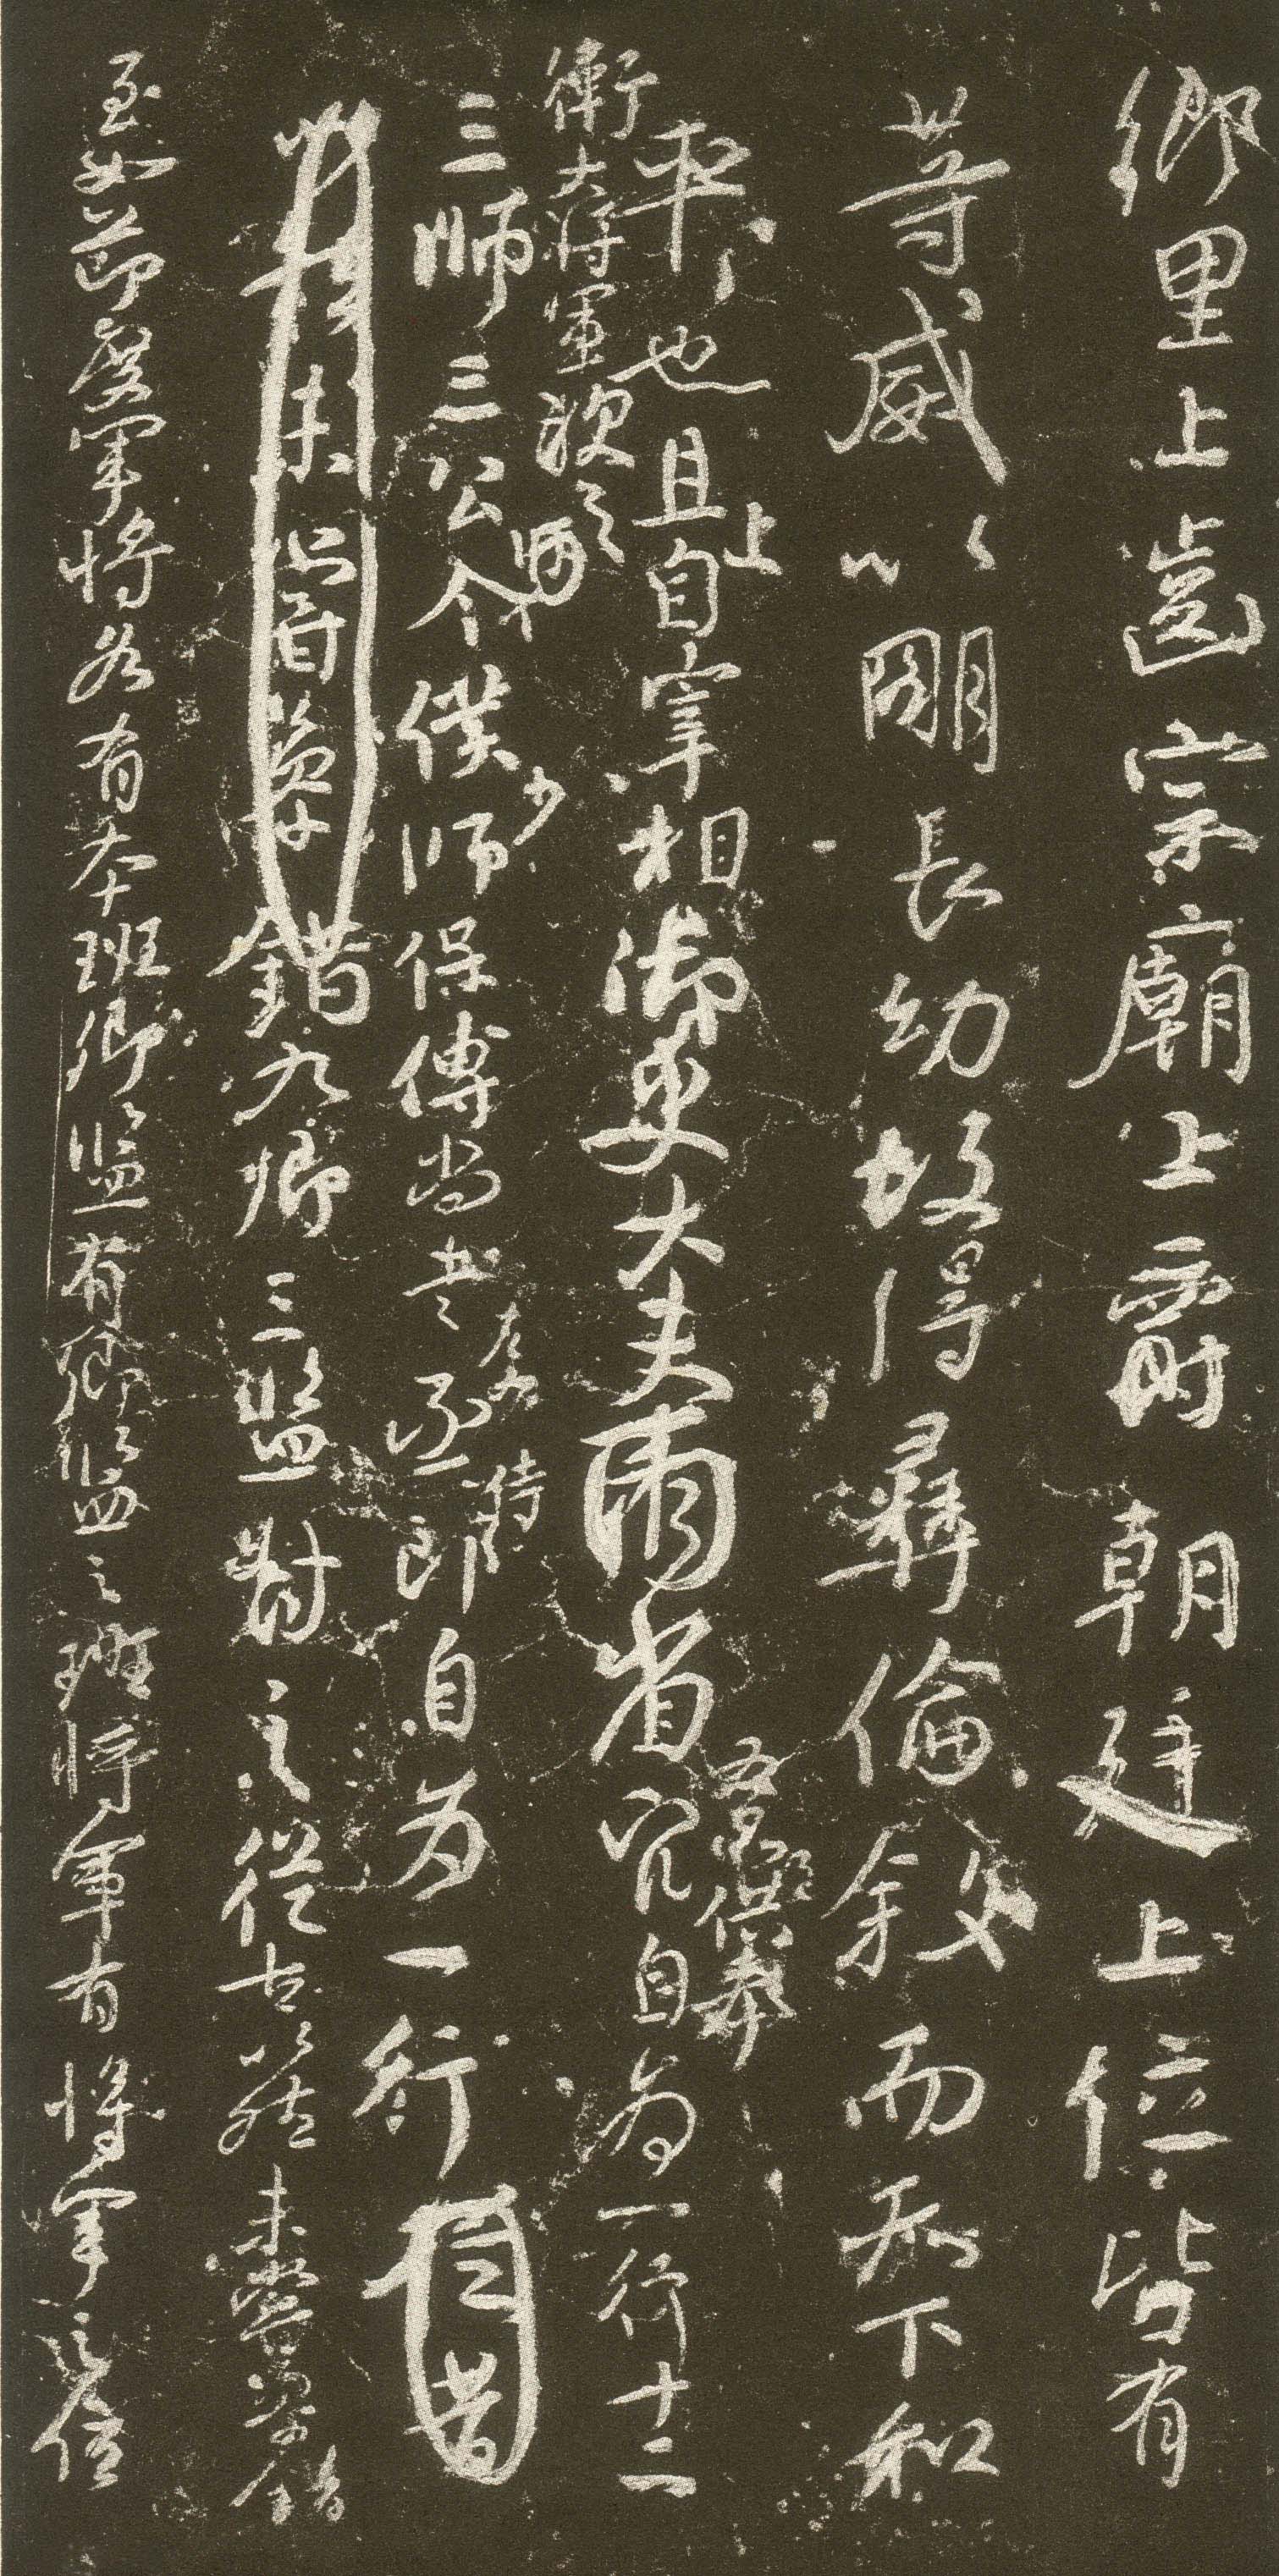 鄉里上齒宗廟上爵朝廷上位皆有
等威以明長幼故得彝倫敘而天下和
平也且上自宰相御史大夫兩省五品以上供奉官自為一行十二
衛大將軍次之
三師三公令僕少師保傅尚書左右丞侍郎自為一行自昔
未嘗參錯九卿三監對之從古以然未嘗參錯
至如節度軍將各有本班卿監有卿監之班將軍有將軍之位